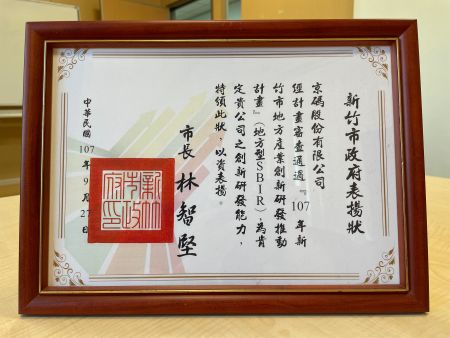 新竹市政府表揚狀
京碼股份有限公司
經計畫審查通過『107年新
竹市地方產業創新研發推動
計畫』(地方型SBIR)，為肯
定貴公司之創新研發能力，
特頒此狀，以資表揚。
市長 林智堅
新竹市政府印
中華民國107年9月27日